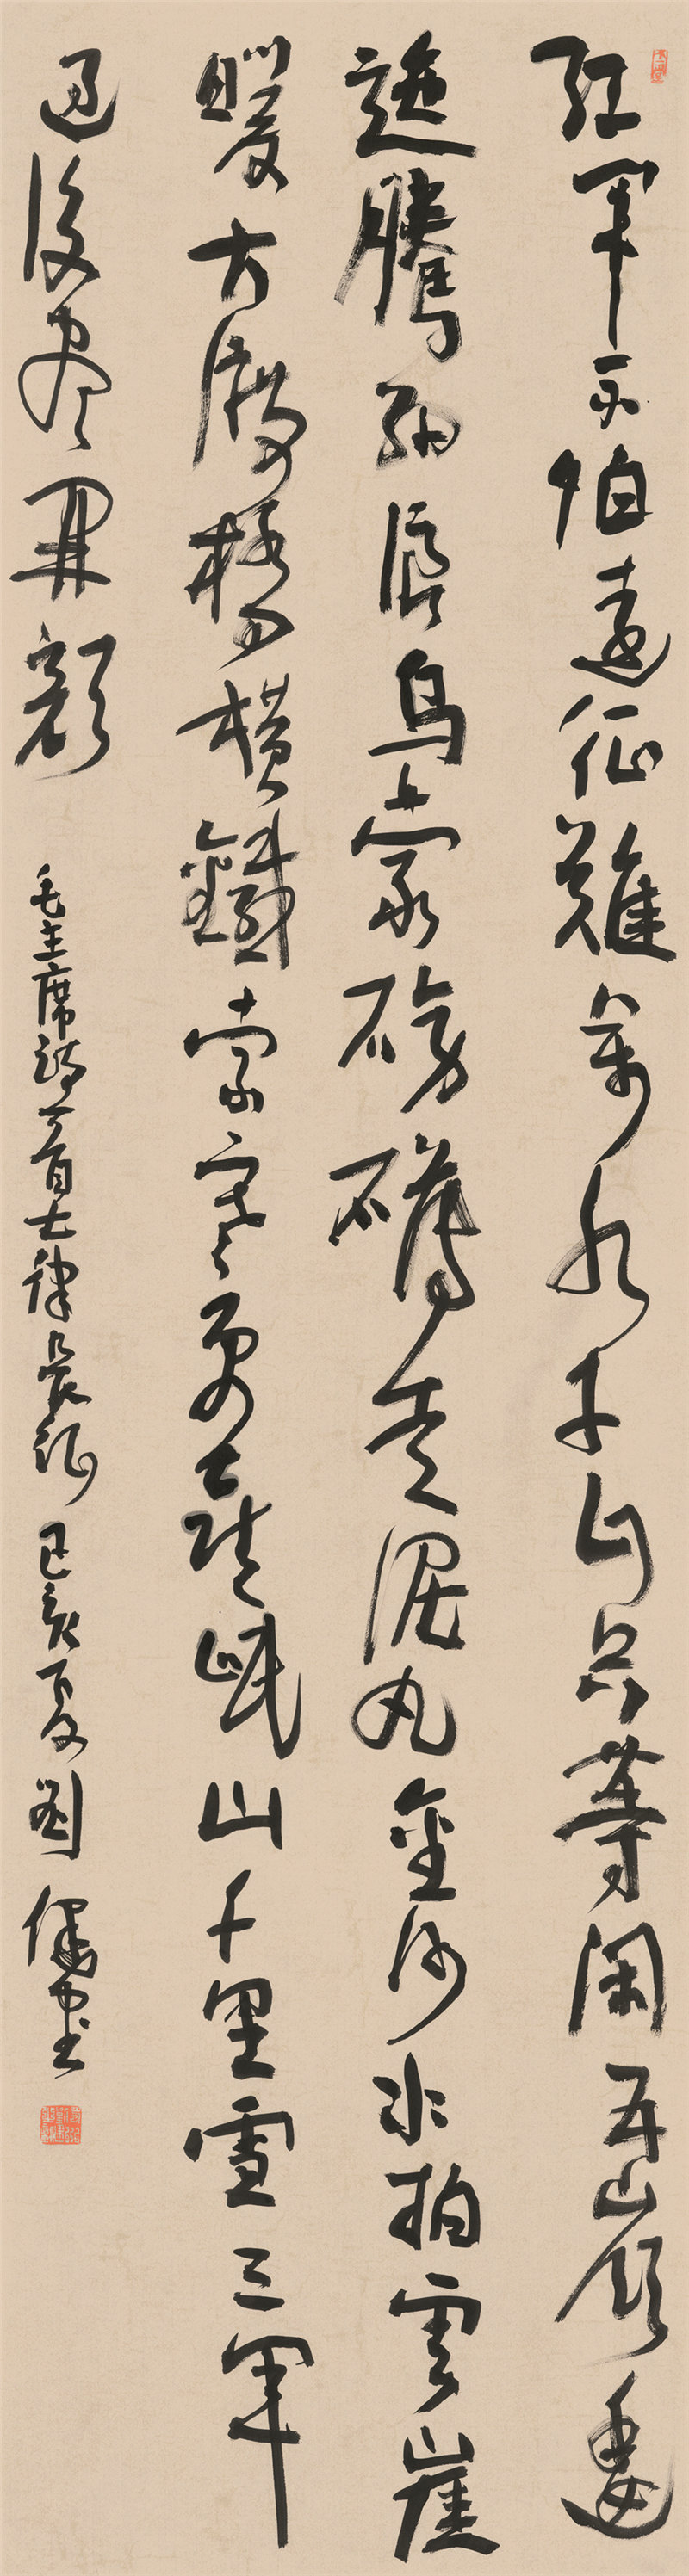 红军不怕远征难万水千山只等闲五岭逶
迤腾细浪乌蒙磅礴走泥丸金沙水拍云崖
暖大渡桥横鐵索寒更喜岷山千里雪三军
过後尽開颜
毛主席诗一首七律长征 己亥夏劉健书